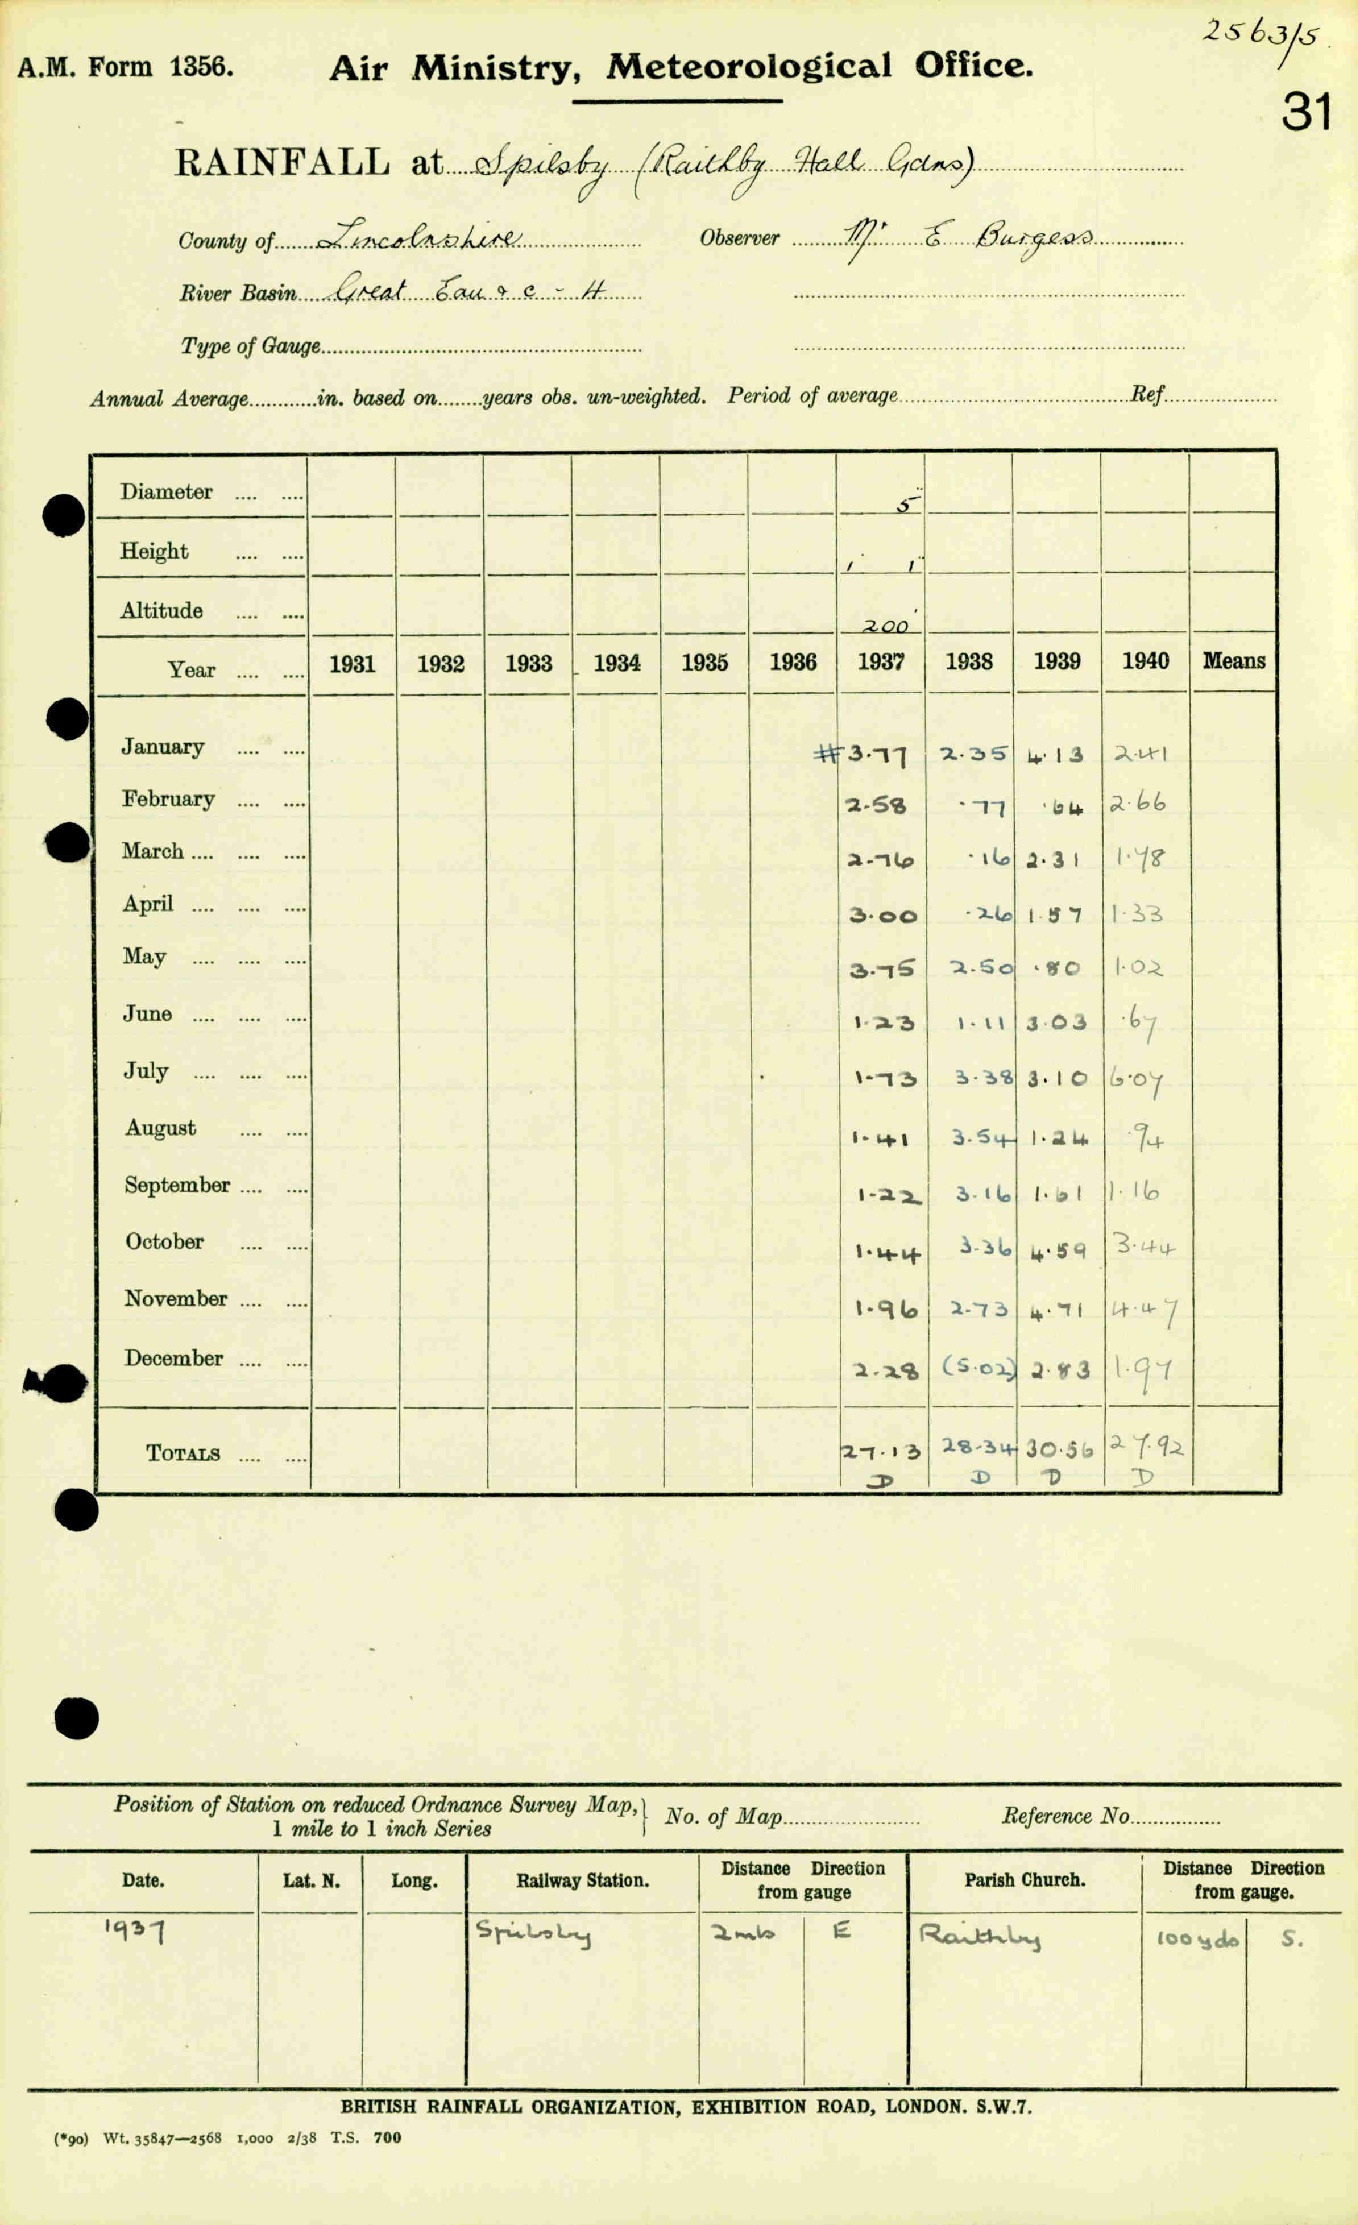 2563/5.
A.M. Form 1356. Air Ministry, Meteorological Office.
31
RAINFALL at Spilsby (Raithby Hall Gdns)
County of Lincolnshire Observer Mr E Burgess
River Basin Great Eau & c - 4
Type of Gauge
Annual Average in. based on years obs. un-weighted. Period of average Ref
Diameter 5"
Height 1' 1"
Altitude 200'
Year 1931 1932 1933 1934 1935 1936 1937 1938 1939 1940 Means
January #3.77 2.35 4.13 2.41
February 2.58 .77 .64 2.66
March 2.76 .16 2.31 1.78
April 3.00 .26 1.57 1.33
May 3.75 2.50 .80 1.02
June 1.23 1.11 3.03 .67
July 1.73 3.38 3.10 6.07
August 1.41 3.54 1.24 .94
September 1.22 3.16 1.61 1.16
October 1.44 3.36 4.59 3.44
November 1.96 2.73 4.71 4.47
December 2.28 (5.02) 2.83 1.97
TOTALS 27.13 28.34 30.56 27.92
D D D D
Position of Station on reduced Ordnance Survey Map,} No. of Map Reference No
1 mile to 1 inch Series
Date. Lat. N. Long. Railway Station. Distance Direction from gauge Parish Church. Distance Direction from gauge.
1937 Spilsby 2 mls E Raithby 100 yds S.
BRITISH RAINFALL ORGANIZATION, EXHIBITION ROAD, LONDON. S.W.7.
(*90) Wt. 35847—2568 1,000 2/38 T.S. 700